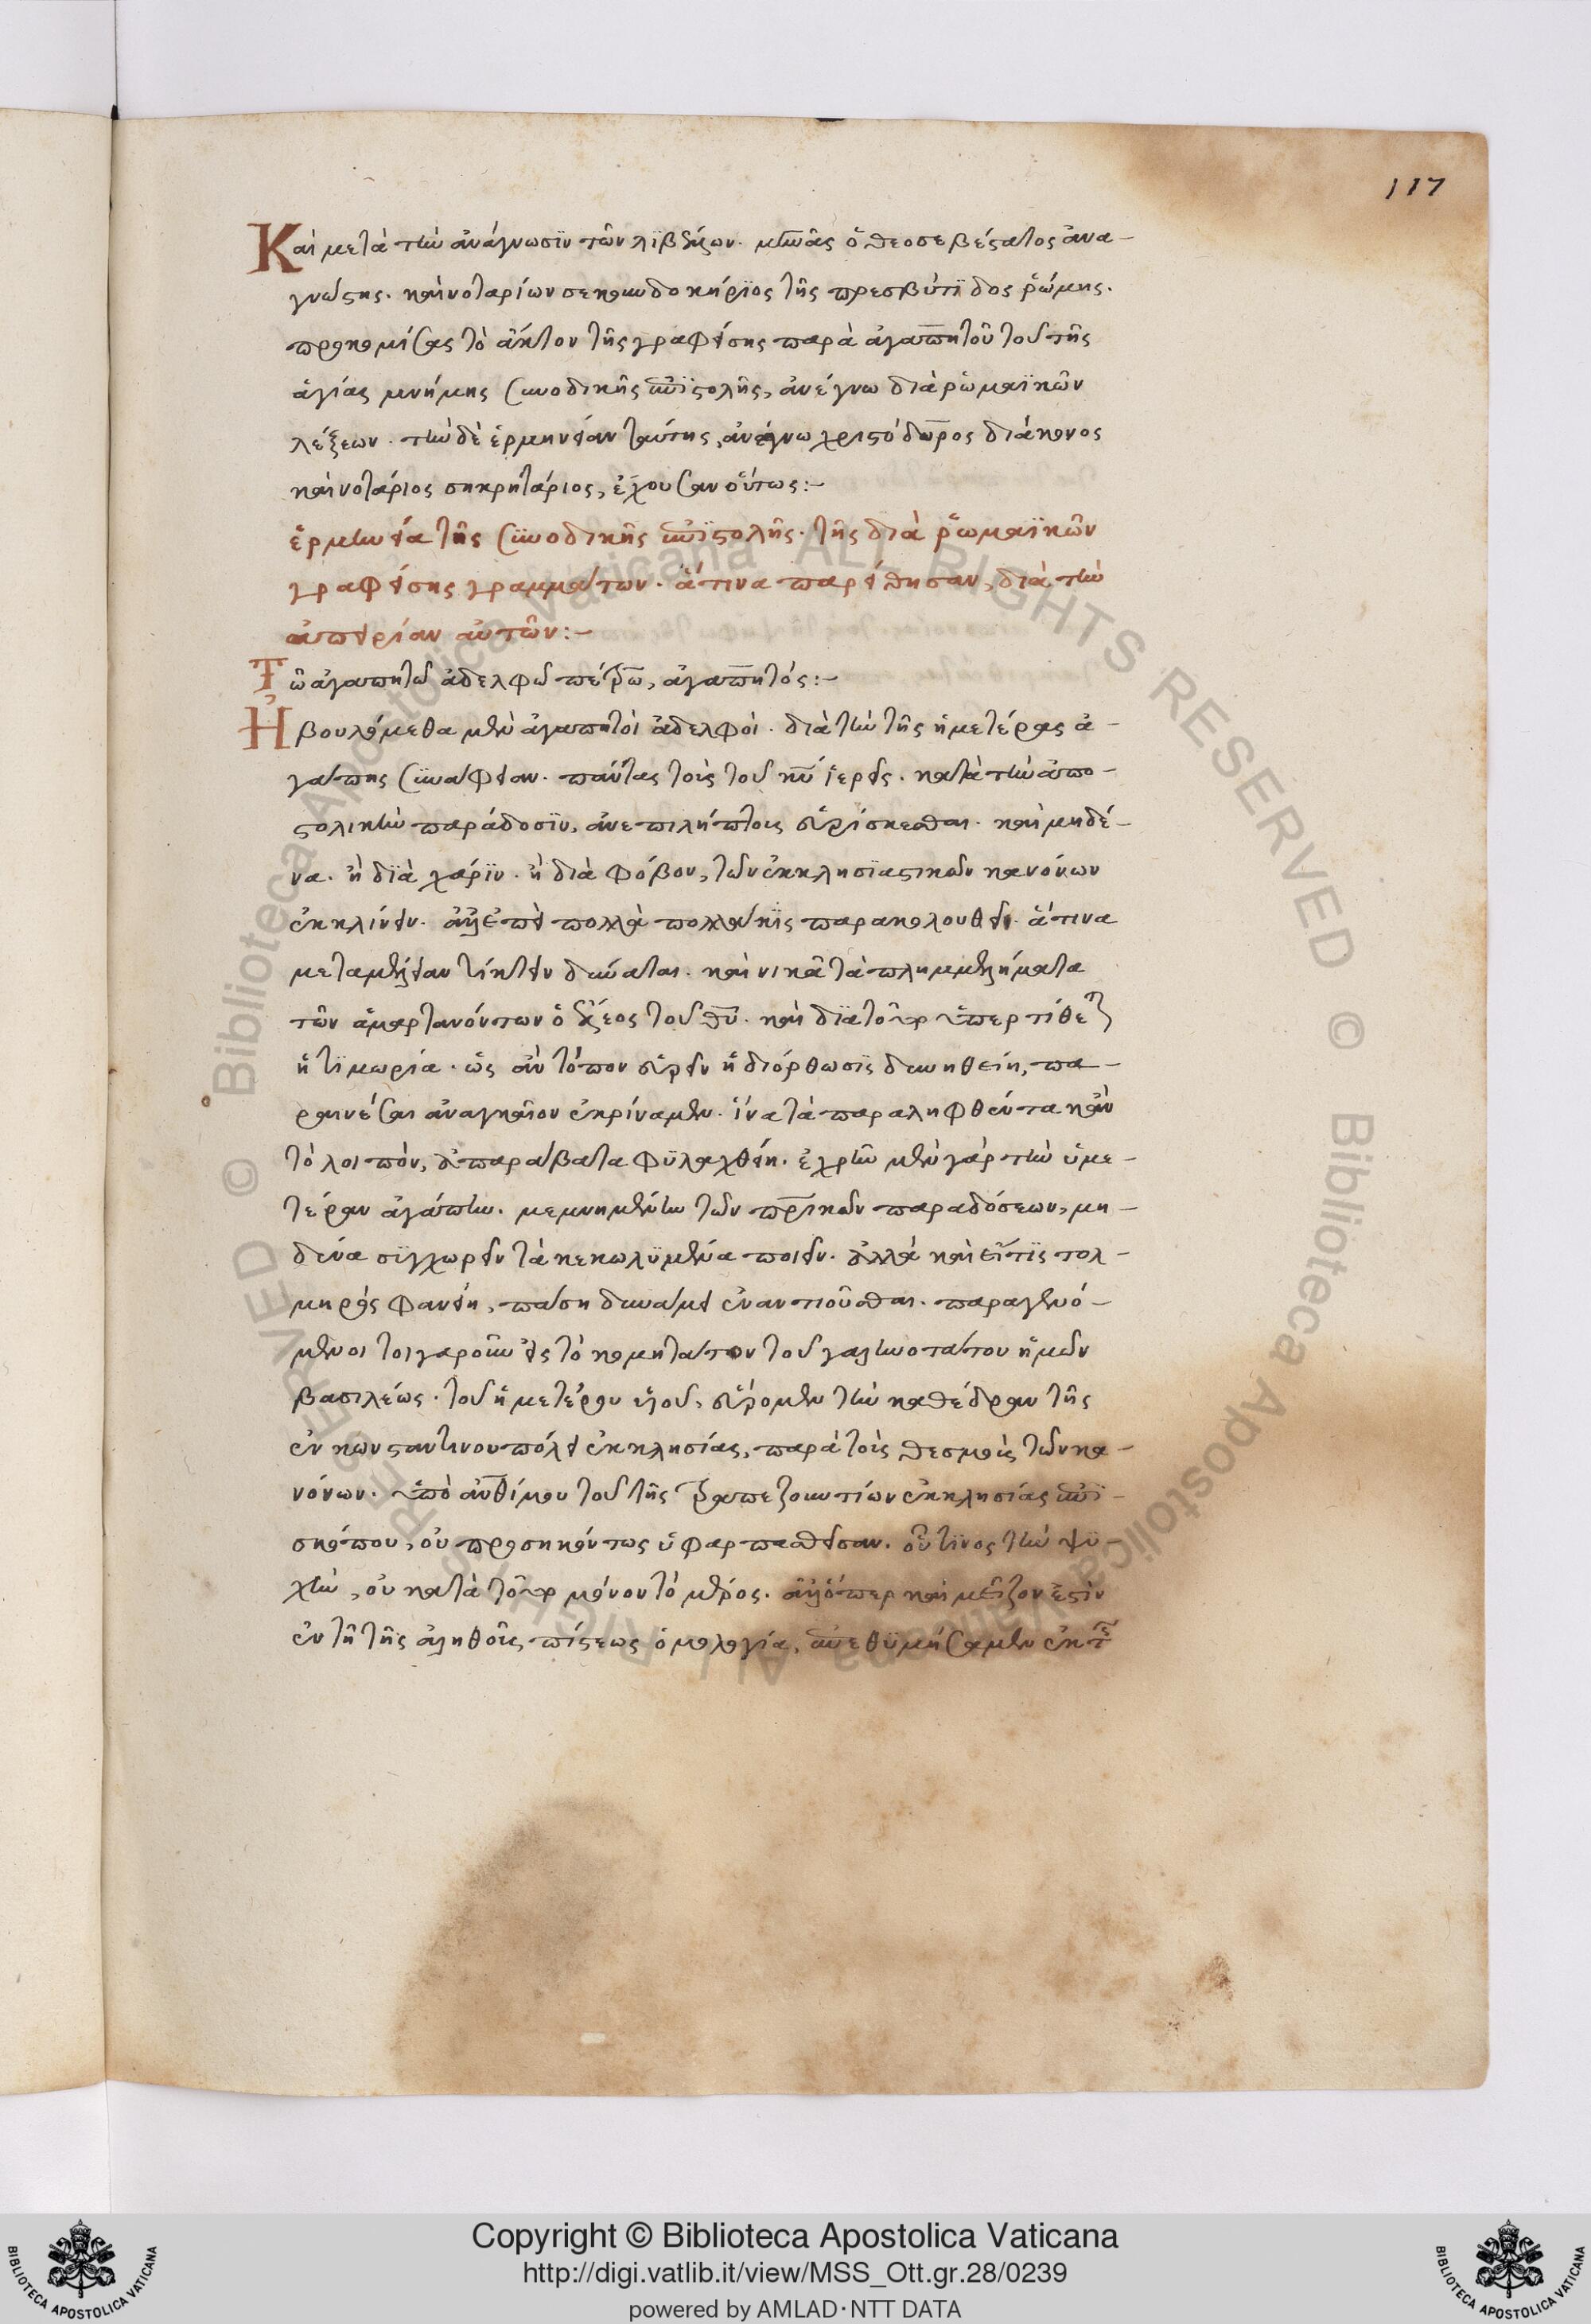 117
Καὶ μετὰ τὴν ἀνάγνωσϊν τῶν λϊβέλλων. μηνᾶς ὁ θεοσεβέστατος ἀνα-
γνώστης. καὶ νοταρίων σεκουνδοκήριος τῆς πρεσβύτϊδος ῥώμης.
προκομίσας τὸ ἄκτον τῆς γραφείσης παρὰ ἀγαπητοῦ τοῦ τῆς
ἁγίας μνήμης συνοδικῆς ἐπϊστολῆς, ἀνέγνω διὰ ῥωμαϊκῶν
λέξεων. τὴν δὲ ἑρμηνείαν ταύτης, ἀνέγνω χριστόδωρος διάκονος
καὶ νοτάριος σηκρητάριος, ἔχουσαν οὕτως:-
ἑρμηνεία τῆς συνοδικῆς ἐπϊστολῆς. τῆς διὰ ῥωμαϊκῶν
γραφείσης γραμμάτων. ἅτινα παρείθησαν, διὰ τὴν
ἀπειρίαν αὐτῶν:-
Τῶ ἀγαπητῶ ἀδελφῶ πέτρω, ἀγαπητός:-
Ἠβουλόμεθα μὲν ἀγαπητοὶ ἀδελφοὶ. διὰ τὴν τῆς ἡμετέρας ἀ-
γάπης συνάφειαν. πάντας τοὺς τοῦ κυ ἱερεῖς. κατὰ τὴν ἀπο-
στολικὴν παράδοσϊν, ἀνεπιλήπτους εὑρίσκεσθαι. καὶ μηδέ-
να. ἢ δϊὰ χάρϊν. ἢ διὰ φόβον, τῶν ἐκκλησϊαστικῶν κανόνων
ἐκκλίνειν. ἀλλ' ἐπεὶ πολλὰ πολλάκϊς παρακολουθεῖ. ἅτινα
μεταμέλειαν τίκτειν δύναται. καὶ νικᾶ τὰ πλημμελήματα
τῶν ἁμαρτανόντων ὁ ἔλεος τοῦ θυ. καὶ δϊὰ τοῦτο ὑπερτίθεται
ἡ τϊμωρία. ὡς ἂν τόπον εὑρεῖν ἡ διόρθωσϊς δυνηθείη, πα-
ραινέσαι ἀναγκαῖον ἐκρίναμεν. ἵνα τὰ παραληφθέντα κἂν
τὸ λοιπὸν, ἀπαράβατα φϋλαχθείη. ἐχρῆν μὲν γὰρ τὴν ὑμε-
τέραν ἀγάπην. μεμνημένην τῶν πρικῶν παραδόσεων, μη-
δένα σϋγχωρεῖν τὰ κεκωλϋμένα ποιεῖν. ἀλλὰ καὶ εἴ τϊς τολ-
μηρὸς φανείη, πάση δυνάμει ἐναντιοῦσθαι. παραγενό-
μενοι τοιγαροῦν εἰς τὸ κομητάτον τοῦ γαληνοτάτου ἡμῶν
βασιλέως. τοῦ ἡμετέρου υἱοῦ, εὕρομεν τὴν καθέδραν τῆς
ἐν κωνσταντινουπόλει ἐκκλησίας, παρὰ τοὺς θεσμοὺς τῶν κα-
νόνων. ὑπὸ ἀνθίμου τοῦ τῆς τραπεζουντίων ἐκκλησίας ἐπϊ-
σκόπου, οὐ προσηκόντως ὑφαρπασθεῖσαν. οὗ τϊνος τὴν ψϋ-
χὴν, οὐ κατὰ τοῦτο μόνον τὸ μέρος. ἀλλ' ὅπερ καὶ μεῖζον ἐστὶν
ἐν τῆ τῆς ἀληθοῦς πίστεως ὁμολογία, ἐπεθϋμήσαμεν ἐκ τῆς
Copyright © Biblioteca Apostolica Vaticana
http://digi.vatlib.it/view/MSS_Ott.gr.28/0239
powered by AMLAD·NTT DATA